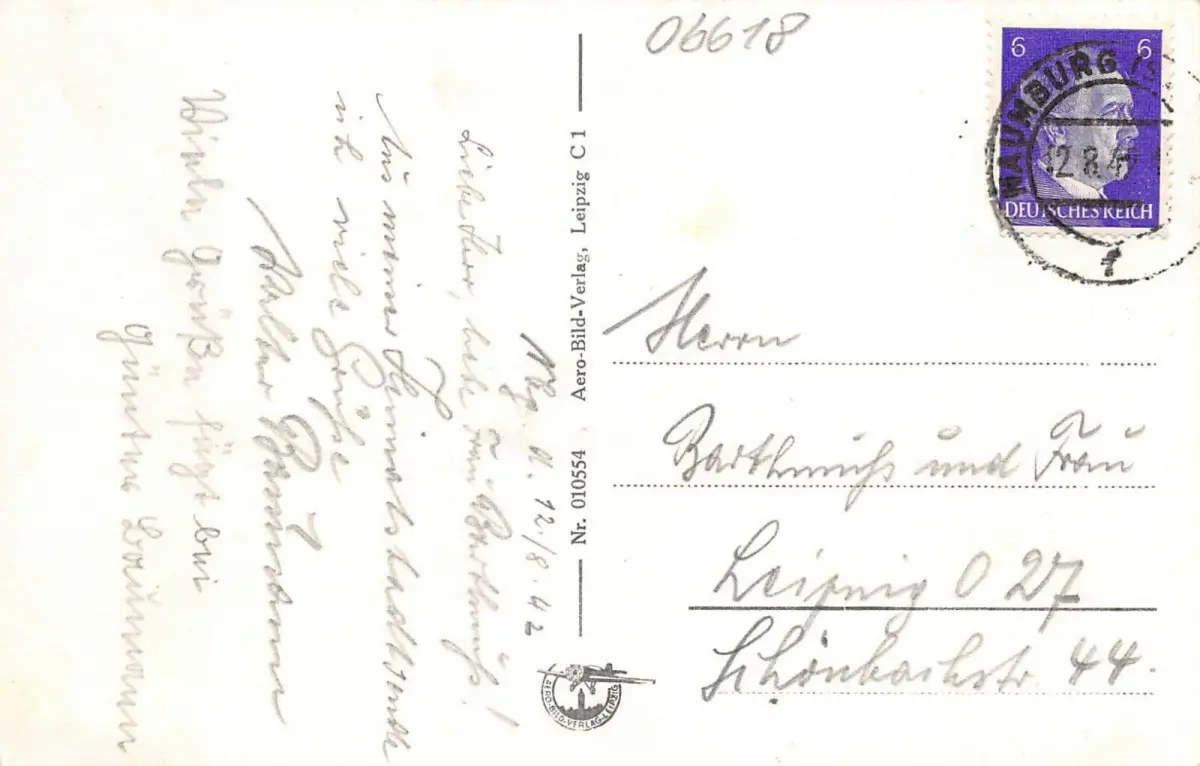 06618
6 6
NAUMBURG
12.8.42
DEUTSCHES REICH
Nbg. d. 12./8.42
Liebe Herr, liebe Frau Barthmuß!
Aus meiner Heimatstadt sende
ich viele Grüße
Walter Baumann
Viele Grüße fügt bei
Günter Baumann
Nr. 010554 Aero-Bild-Verlag, Leipzig C 1
AERO-BILD-VERLAG-LEIPZIG
Herrn
Barthmuß und Frau
Leipzig O 27
Schönbachstr. 44.